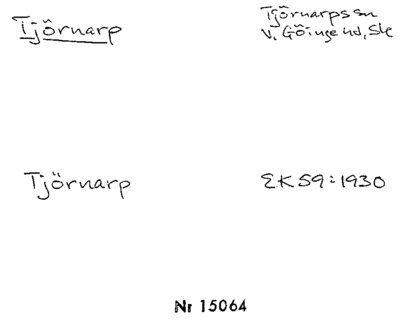 Tjörnarp
Tjörnarps sn
V. Göinge hd, Sk
Tjörnarp
EK 59:1930
Nr 15064